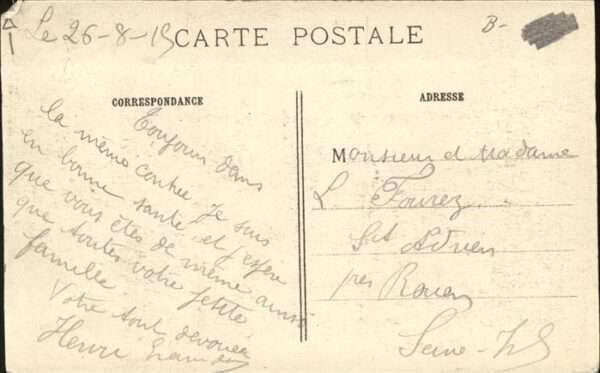 Le 26-8-15
CARTE POSTALE
B-
CORRESPONDANCE
Toujour dans
la même contrée. Je suis
en bonne santé et j'espère
que vous êtes de même ainsi
que toutes votre petite
famille.
Votre tout dévoué
Henri
ADRESSE
Monsieur et Madame
L Fourez
St Adrien
près Rouen
Seine-Inf